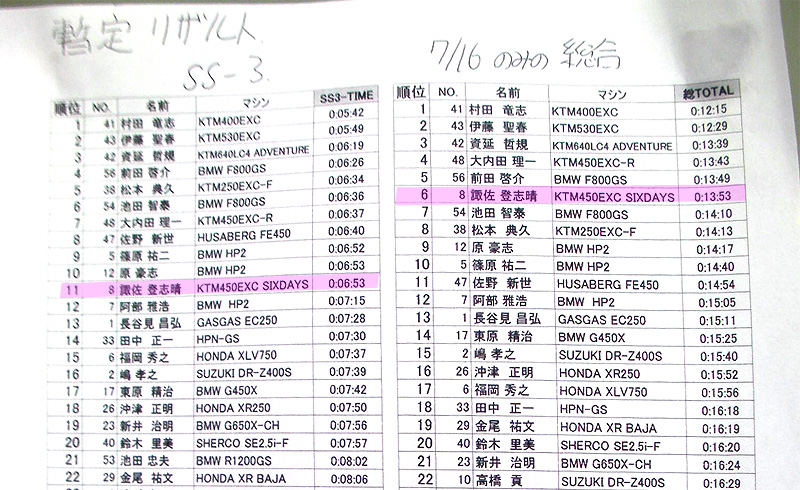 暫定 リザルト
SS-3.
順位 NO. 名前 マシン SS3-TIME
1 41 村田 竜志 KTM400EXC 0:05:42
2 43 伊藤 聖春 KTM530EXC 0:05:49
3 42 資延 哲規 KTM640LC4 ADVENTURE 0:06:19
4 56 前田 啓介 BMW F800GS 0:06:26
5 38 松本 典久 KTM250EXC-F 0:06:34
6 54 池田 智泰 BMW F800GS 0:06:36
7 48 大内田 理一 KTM450EXC-R 0:06:37
8 47 佐野 新世 HUSABERG FE450 0:06:40
9 5 篠原 祐二 BMW HP2 0:06:52
10 12 原 豪志 BMW HP2 0:06:53
11 8 諏佐 登志晴 KTM450EXC SIXDAYS 0:06:53
12 7 阿部 雅浩 BMW HP2 0:07:15
13 1 長谷見 昌弘 GASGAS EC250 0:07:28
14 33 田中 正一 HPN-GS 0:07:30
15 6 福岡 秀之 HONDA XLV750 0:07:37
16 2 嶋 孝之 SUZUKI DR-Z400S 0:07:39
17 17 東原 精治 BMW G450X 0:07:42
18 26 沖津 正明 HONDA XR250 0:07:50
19 23 新井 治明 BMW G650X-CH 0:07:56
20 40 鈴木 里美 SHERCO SE2.5i-F 0:07:57
21 53 池田 忠夫 BMW R1200GS 0:08:02
22 29 金尾 祐文 HONDA XR BAJA 0:08:06
7/16 のみの 総合
順位 NO. 名前 マシン 総TOTAL
1 41 村田 竜志 KTM400EXC 0:12:15
2 43 伊藤 聖春 KTM530EXC 0:12:29
3 42 資延 哲規 KTM640LC4 ADVENTURE 0:13:39
4 48 大内田 理一 KTM450EXC-R 0:13:43
5 56 前田 啓介 BMW F800GS 0:13:49
6 8 諏佐 登志晴 KTM450EXC SIXDAYS 0:13:53
7 54 池田 智泰 BMW F800GS 0:14:10
8 38 松本 典久 KTM250EXC-F 0:14:13
9 12 原 豪志 BMW HP2 0:14:17
10 5 篠原 祐二 BMW HP2 0:14:40
11 47 佐野 新世 HUSABERG FE450 0:14:54
12 7 阿部 雅浩 BMW HP2 0:15:05
13 1 長谷見 昌弘 GASGAS EC250 0:15:11
14 17 東原 精治 BMW G450X 0:15:25
15 2 嶋 孝之 SUZUKI DR-Z400S 0:15:40
16 26 沖津 正明 HONDA XR250 0:15:52
17 6 福岡 秀之 HONDA XLV750 0:15:56
18 33 田中 正一 HPN-GS 0:16:18
19 29 金尾 祐文 HONDA XR BAJA 0:16:19
20 40 鈴木 里美 SHERCO SE2.5i-F 0:16:20
21 23 新井 治明 BMW G650X-CH 0:16:24
22 10 高橋 貢 SUZUKI DR-Z400S 0:16:29